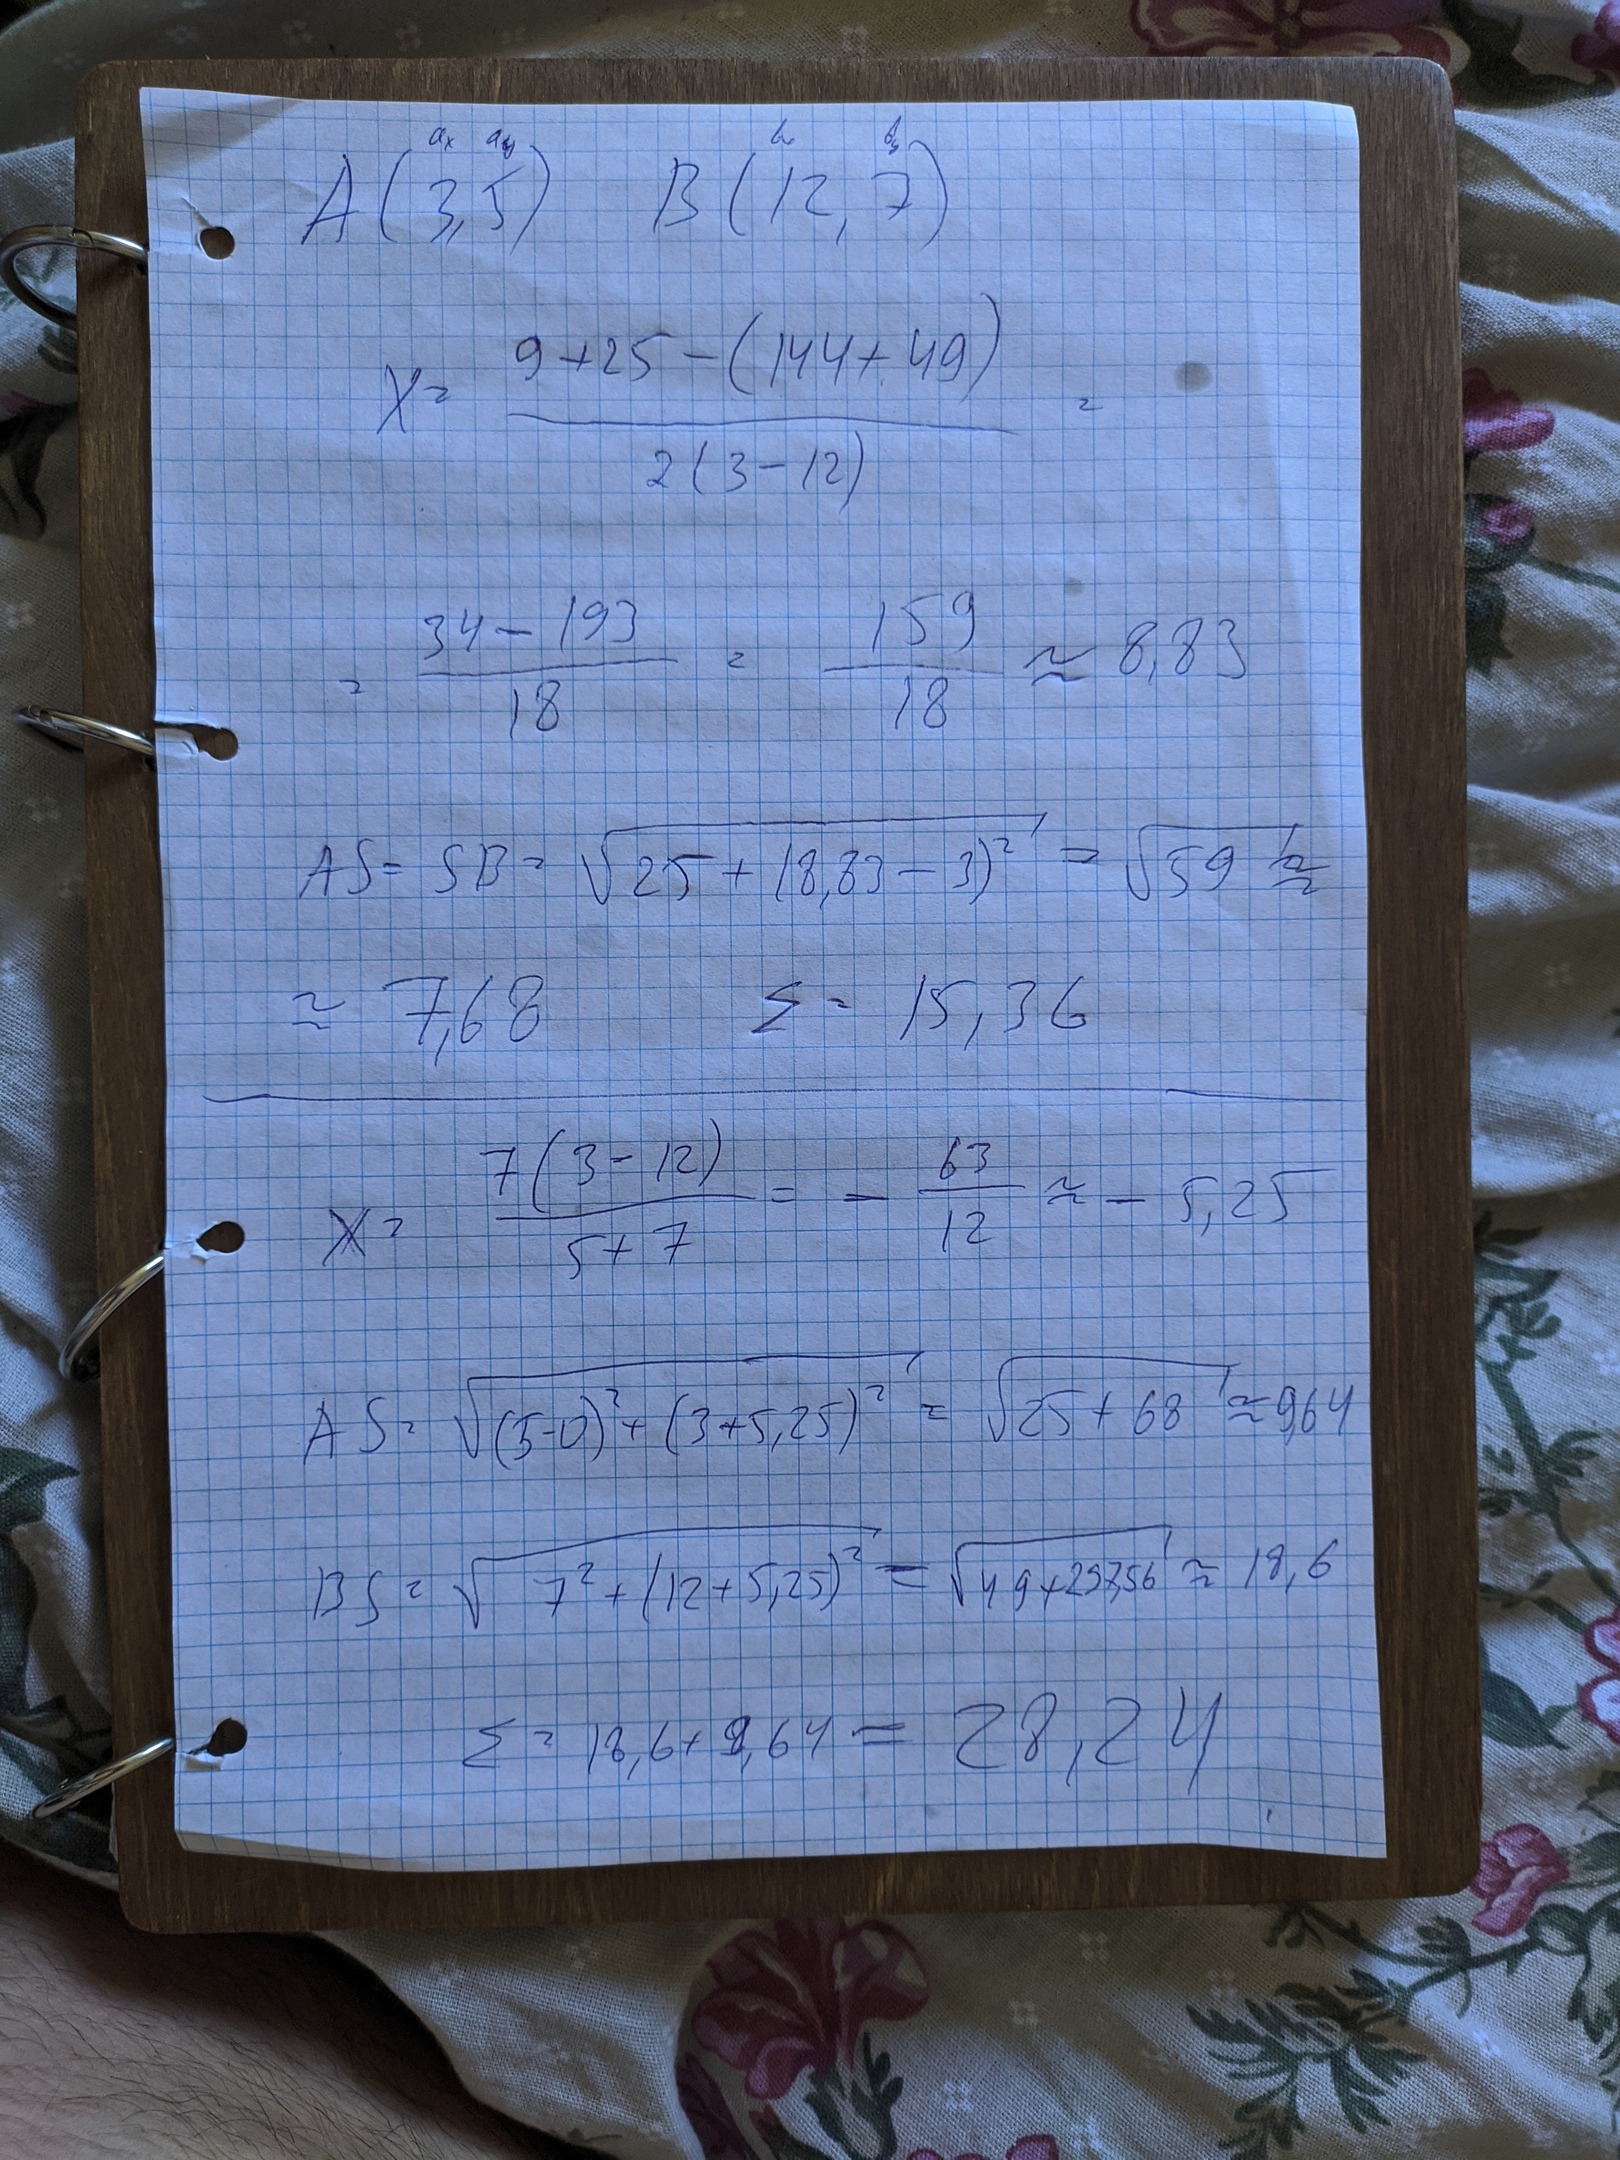 aₓ aᵧ b bᵧ
A(3,5) B(12,7)
X = (9+25-(144+49))/(2(3-12)) =
= (34-193)/18 = 159/18 ≈ 8,83
AS = SB = √(25+(8,83-3)²) = √59 ≈
≈ 7,68 Σ = 15,36
X = (7(3-12))/(5+7) = -63/12 ≈ -5,25
AS = √((5-0)²+(3+5,25)²) = √(25+68) ≈ 9,64
BS = √(7²+(12+5,25)²) = √(49+297,56) ≈ 18,6
Σ = 18,6+9,64 = 28,24